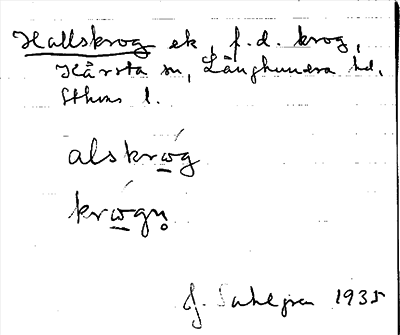 Hallskrog ek, f.d. krog,
Kårsta sn, Långhundra hd,
Sthms l.
alskrog
krogn̥
J. Sahlgren 1935